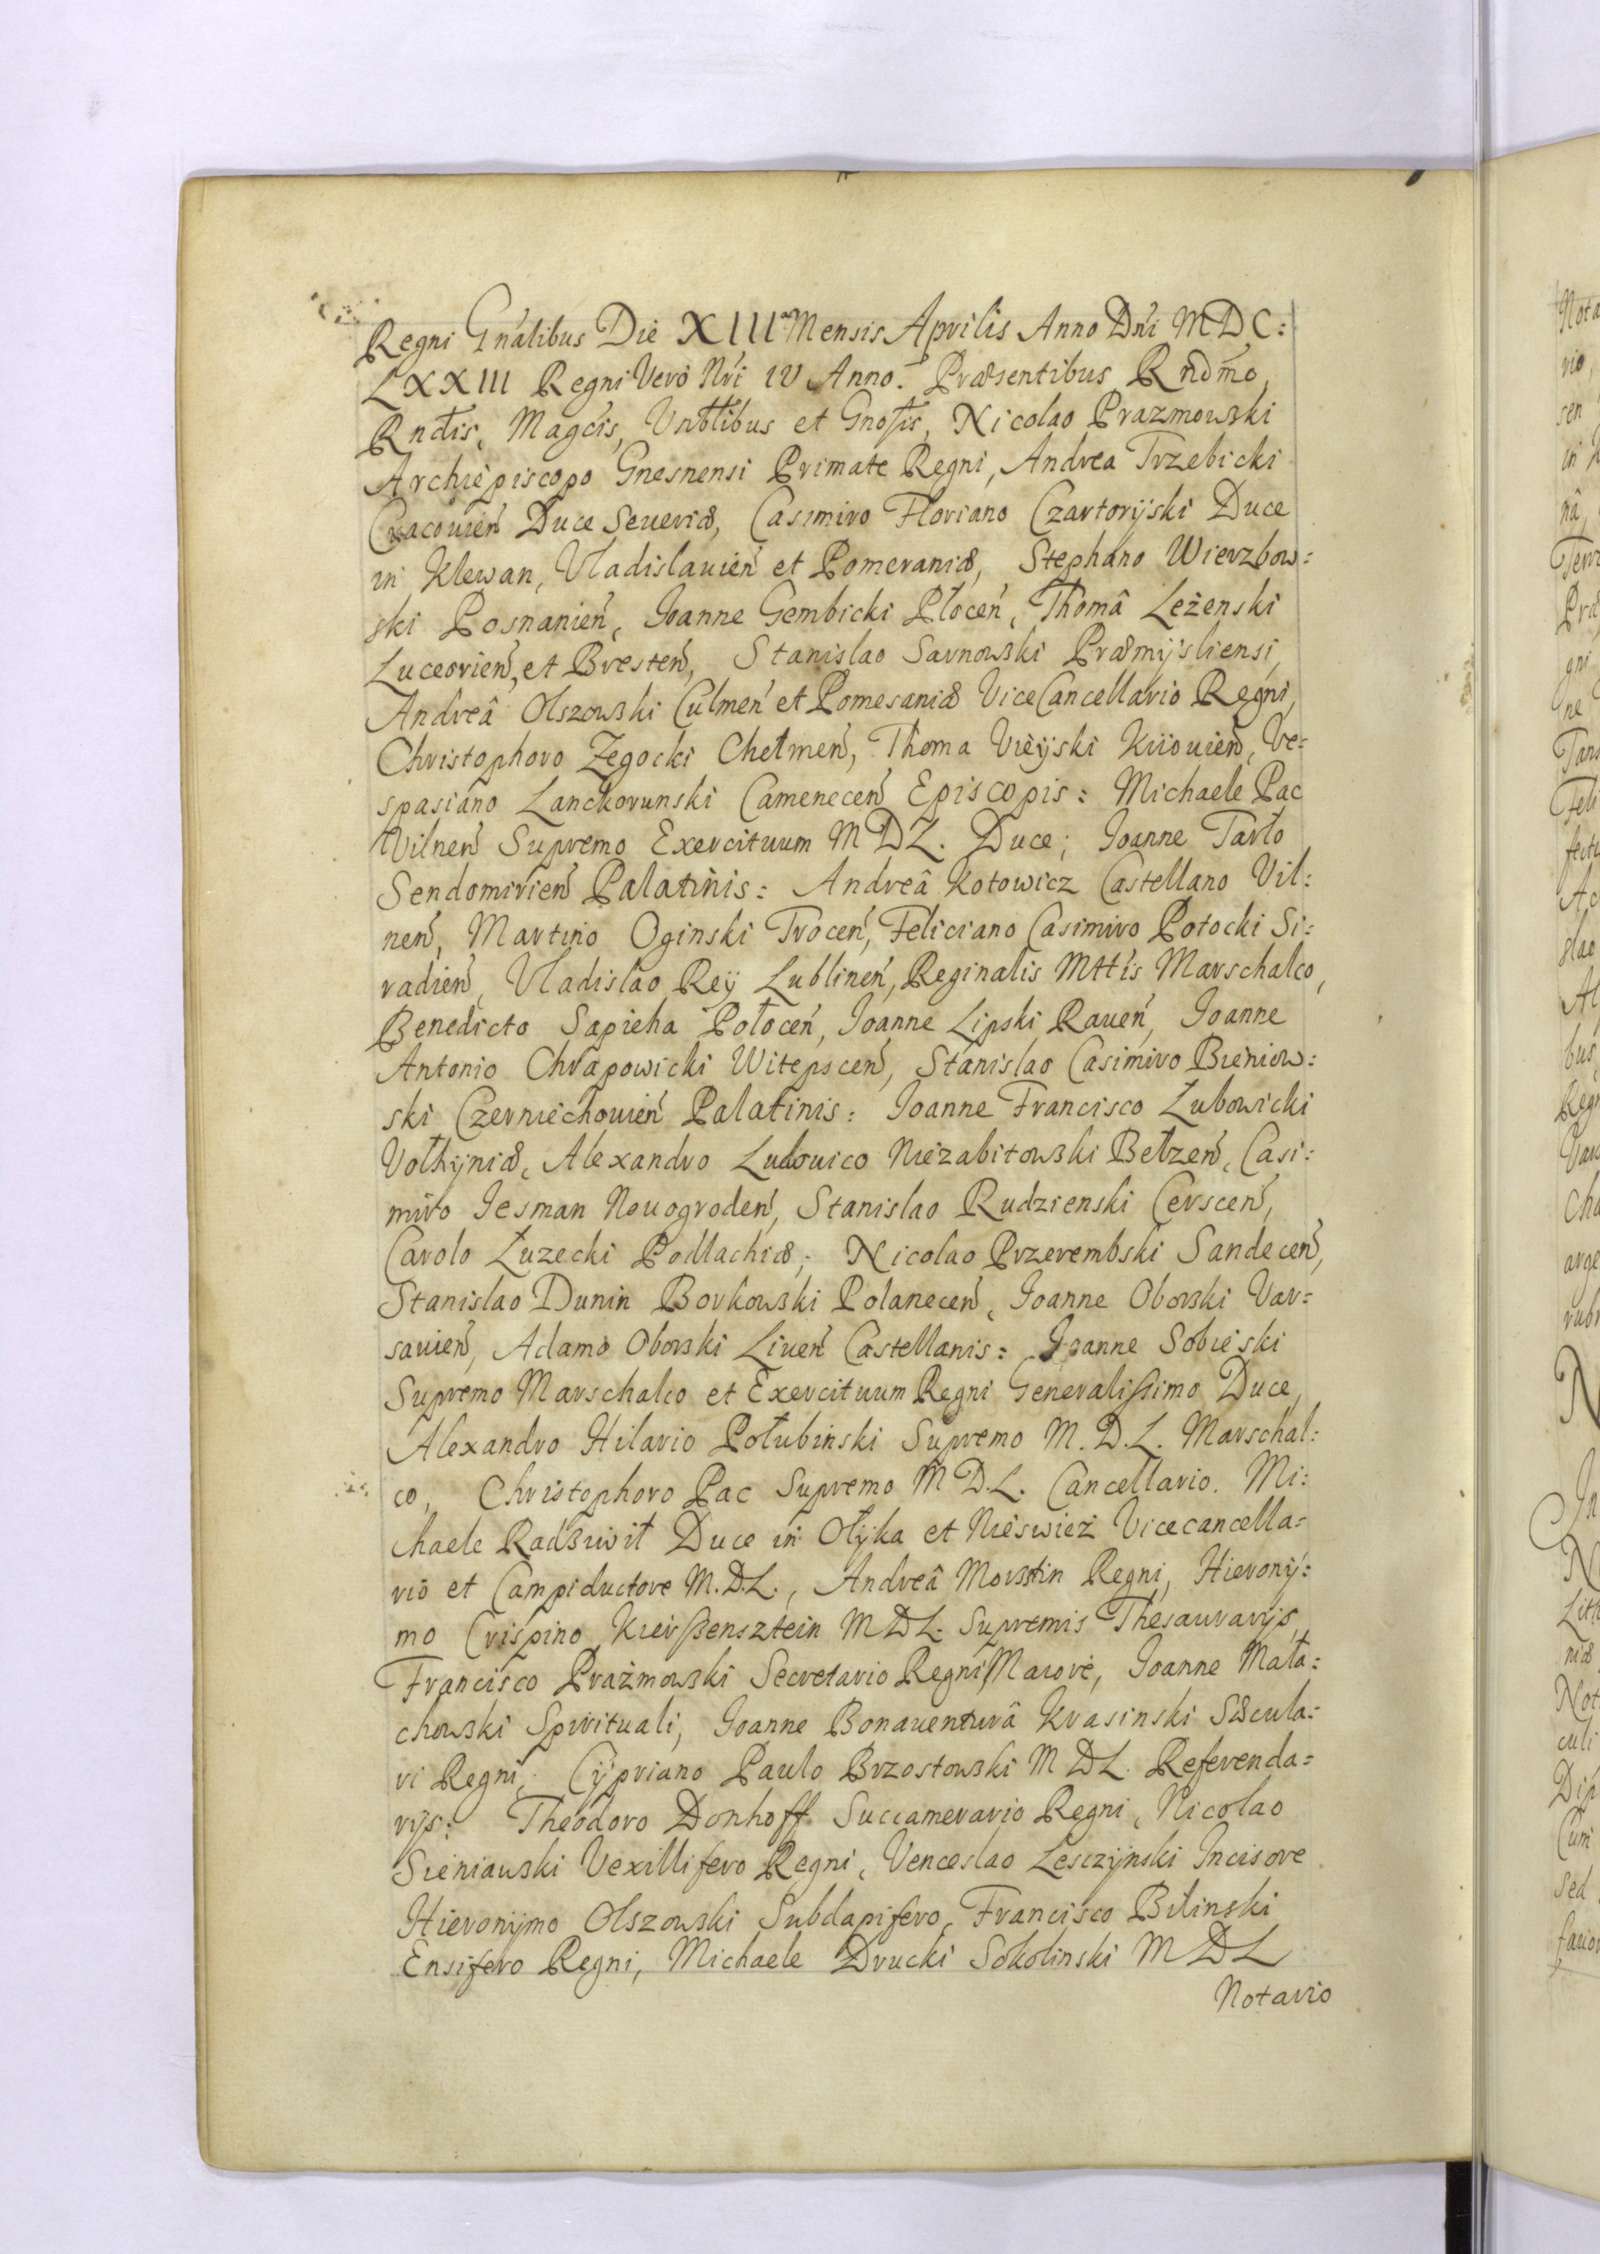 Regni Gnalibus Die XIII Mensis Aprilis Anno Dni MDC:
LXXIII Regni Vero Nri IV Anno. Præsentibus Rndmo,
Rndis, Magcis, Vnblibus et Gnosis, Nicolao Prazmowski
Archiepiscopo Gnesnensi Primate Regni, Andrea Trzebicki
Cracouień Duce Seueriæ, Casimiro Floriano Czartoryski Duce
in Klewan, Vladislauień et Pomeraniæ, Stephano Wierzbow:
ski Posnanień, Joanne Gembicki Płoceń, Thomâ Leżenski
Luceorień, et Bresteń, Stanislao Sarnowski Præmysliensi,
Andreâ Olszowski Culmeń et Pomesaniæ ViceCancellario Regni,
Christophoro Zegocki Chełmeń, Thoma Vieyski Kiiouień, Ve:
spasiano Lanckorunski Cameneceń Episcopis: Michaele Pac
Vilneń Supremo Exercituum MDL. Duce; Joanne Tarło
Sendomirień Palatinis: Andreâ Kotowicz Castellano Vil:
neń, Martino Oginski Troceń, Feliciano Casimiro Potocki Si:
radień, Vladislao Rey Lublineń, Reginalis Mttis Marschalco,
Benedicto Sapieha Połoceń, Joanne Lipski Raueń, Joanne
Antonio Chrapowicki Witepsceń, Stanislao Casimiro Bieniow:
ski Czerniechouień Palatinis: Joanne Francisco Lubowicki
Vołhyniæ, Alexandro Ludouico Niezabitowski Bełzeń, Casi:
miro Jesman Nouogrodeń, Stanislao Rudzienski Cersceń,
Carolo Łuzecki Podlachiæ; Nicolao Przerembski Sandeceń,
Stanislao Dunin Borkowski Polaneceń, Joanne Oborski Var:
sauień, Adamo Oborski Liueń Castellanis: Joanne Sobieski
Supremo Marschalco et Exercituum Regni Generalissimo Duce,
Alexandro Hilario Połubinski Supremo M.D.L. Marschal:
co, Christophoro Pac Supremo M D.L. Cancellario. Mi:
chaele Radziwił Duce in Ołyka et Nieswież Vicecancella:
rio et Campiductore M.D.L., Andreâ Morsztin Regni, Hierony:
mo Crispino Kierszensztein MDL. Supremis Thesaurarijs,
Francisco Prażmowski Secretario Regni Maiore, Joanne Mała:
chowski Spirituali, Joanne Bonauenturâ Krasinski Sæcula:
ri Regni, Cypriano Paulo Brzostowski M DL. Referenda:
rijs: Theodoro Donhoff Succamerario Regni, Nicolao
Sieniawski Vexillifero Regni, Venceslao Lesczynski Incisore
Hieronymo Olszowski Subdapifero, Francisco Bilinski
Ensifero Regni, Michaele Drucki Sokolinski M DL
Notario